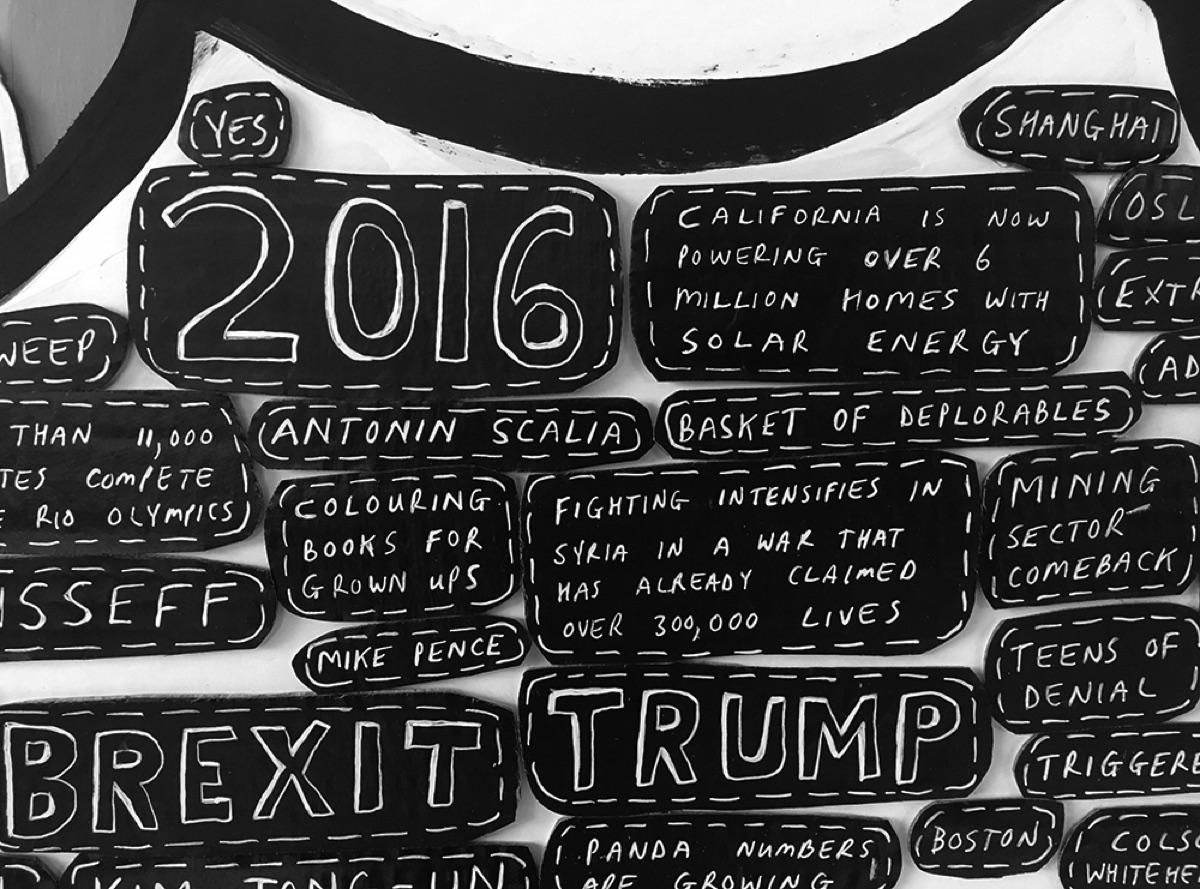 YES
SHANGHAI
2016
CALIFORNIA IS NOW
POWERING OVER 6
MILLION HOMES WITH
SOLAR ENERGY
OSL
EXTR
WEEP
AD
THAN 11,000
TES COMPETE
E RIO OLYMPICS
ANTONIN SCALIA
BASKET OF DEPLORABLES
COLOURING
BOOKS FOR
GROWN UPS
FIGHTING INTENSIFIES IN
SYRIA IN A WAR THAT
HAS ALREADY CLAIMED
OVER 300,000 LIVES
MINING
SECTOR
COMEBACK
SSEFF
MIKE PENCE
TEENS OF
DENIAL
BREXIT
TRUMP
TRIGGERE
BOSTON
PANDA NUMBERS
ARE GROWING
COLS
WHITEHE
KIM JONG-UN